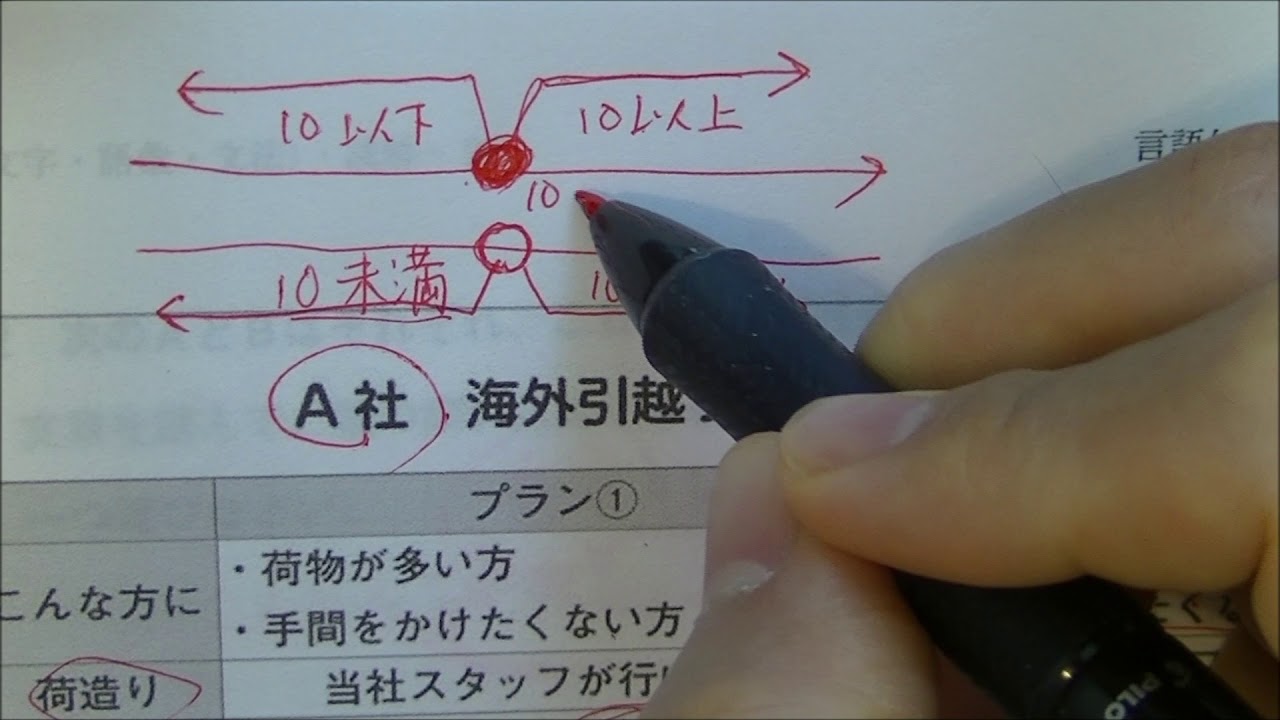 10以下 10以上
言語
10
10未満 10
A社 海外引越
プラン①
こんな方に
・荷物が多い方
・手間をかけたくない方
荷造り 当社スタッフが行
PILO